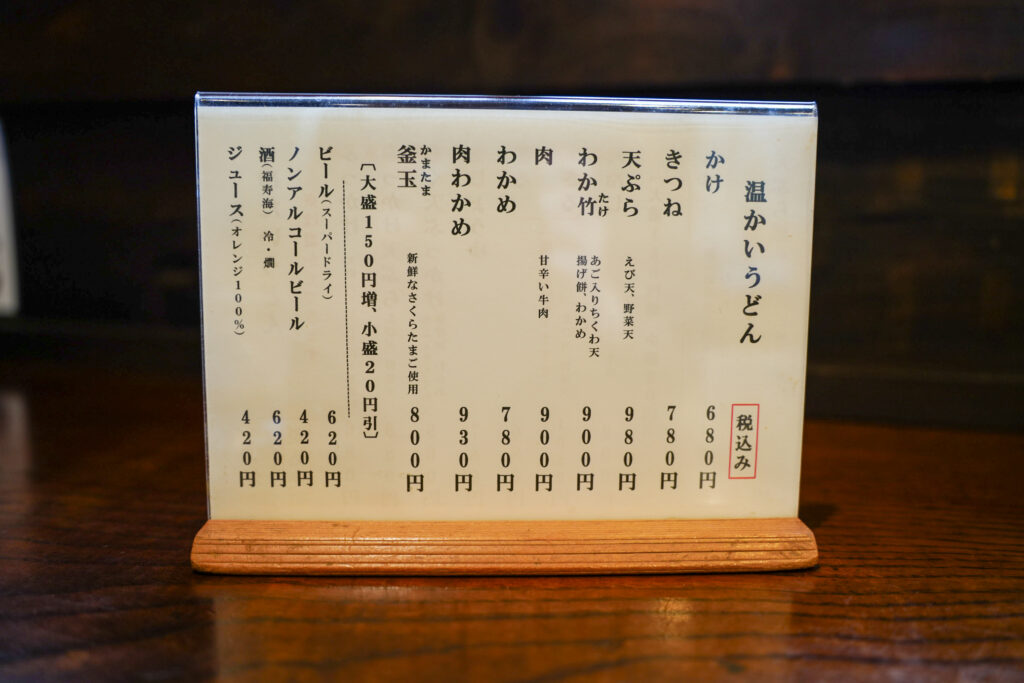 温かいうどん 税込み
かけ 680円
きつね 780円
天ぷら えび天、野菜天 980円
わか竹 たけ あご入りちくわ天
揚げ餅、わかめ 900円
肉 甘辛い牛肉 900円
わかめ 780円
肉わかめ 930円
釜玉 かまたま 新鮮なさくらたまご使用 800円
〔大盛150円増、小盛20円引〕
ビール(スーパードライ) 620円
ノンアルコールビール 420円
酒(福寿海) 冷・燗 620円
ジュース(オレンジ100%) 420円